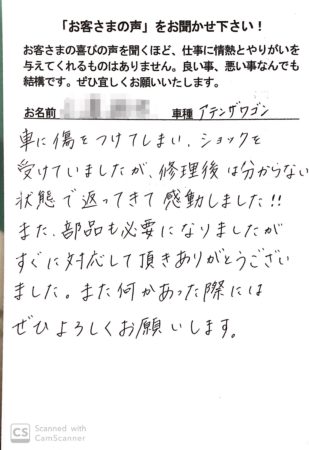 「お客さまの声」をお聞かせ下さい！
お客さまの喜びの声を聞くほど、仕事に情熱とやりがいを
与えてくれるものはありません。良い事、悪い事なんでも
結構です。ぜひ宜しくお願いいたします。
お名前 車種 アテンザワゴン
車に傷をつけてしまい、ショックを
受けていましたが、修理後は分からない
状態で返ってきて感動しました!!
また、部品も必要になりましたが
すぐに対応して頂きありがとうござい
ました。また何かあった際には
ぜひよろしくお願いします。
CS Scanned with
CamScanner